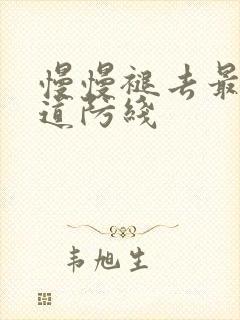 慢慢褪去最
道防线
韦旭生